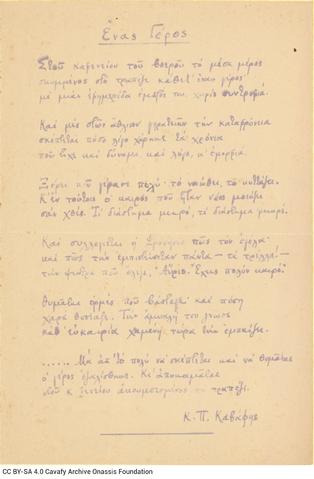 Ένας Γέρος
Στου καφενείου του βοερού το μέσα μέρος
σκυμμένος στο τραπέζι κάθετ' ένας γέρος·
με μιαν εφημερίδα εμπρός του, χωρίς συντροφιά.
Και μες στων άθλιων γηρατειών την καταφρόνια
σκέπτεται πόσο λίγο χάρηκε τα χρόνια
που είχε και δύναμι, και λόγο, κ' εμορφιά.
Ξέρει που γέρασε πολύ· το νοιώθει, το κυττάζει.
Κ' εν τούτοις ο καιρός που ήταν νέος μοιάζει
σαν χθες. Τι διάστημα μικρό, τι διάστημα μικρό.
Και συλλογιέται η Φρόνησις πώς τον εγέλα·
και πώς την εμπιστεύονταν πάντα — τι τρέλλα! —
την ψεύτρα που έλεγε, "Αύριο. Έχεις πολύν καιρό."
Θυμάται ορμές που βάσταγε· και πόση
χαρά θυσίαζε. Την άμυαλή του γνώσι
κάθ' ευκαιρία χαμένη τώρα την εμπαίζει.
...... Μα απ' το πολύ να σκέπτεται και να θυμάται
ο γέρος εζαλίσθηκε. Κι αποκοιμάται
στου καφενείου ακουμπισμένος το τραπέζι.
Κ. Π. Καβάφης
CC BY-SA 4.0 Cavafy Archive Onassis Foundation